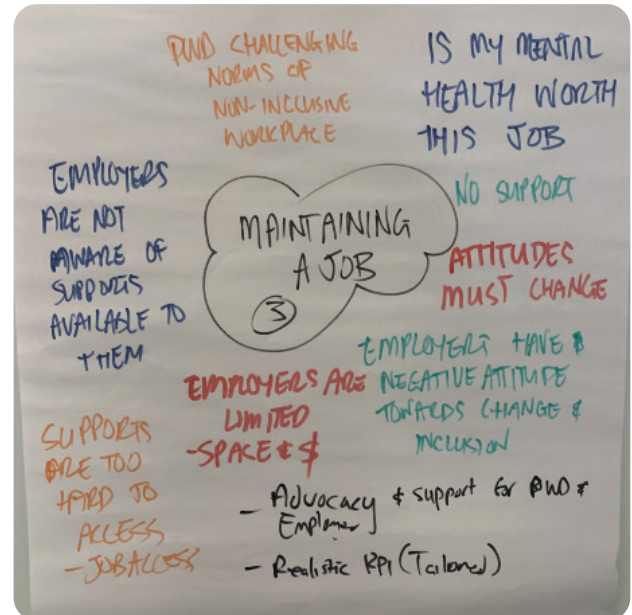 PWD CHALLENGING
NORMS OF
NON-INCLUSIVE
WORKPLACE
IS MY MENTAL
HEALTH WORTH
THIS JOB
EMPLOYERS
ARE NOT
AWARE OF
SUPPORTS
AVAILABLE TO
THEM
MAINTAINING
A JOB
3
NO SUPPORT
ATTITUDES
MUST CHANGE
EMPLOYERS HAVE
NEGATIVE ATTITUDE
TOWARDS CHANGE &
INCLUSION
EMPLOYERS ARE
LIMITED
-SPACE & $
SUPPORTS
ARE TOO
HARD TO
ACCESS
-JOBACCESS
- Advocacy & support for PWD &
Employer
- Realistic KPI (Tailored)